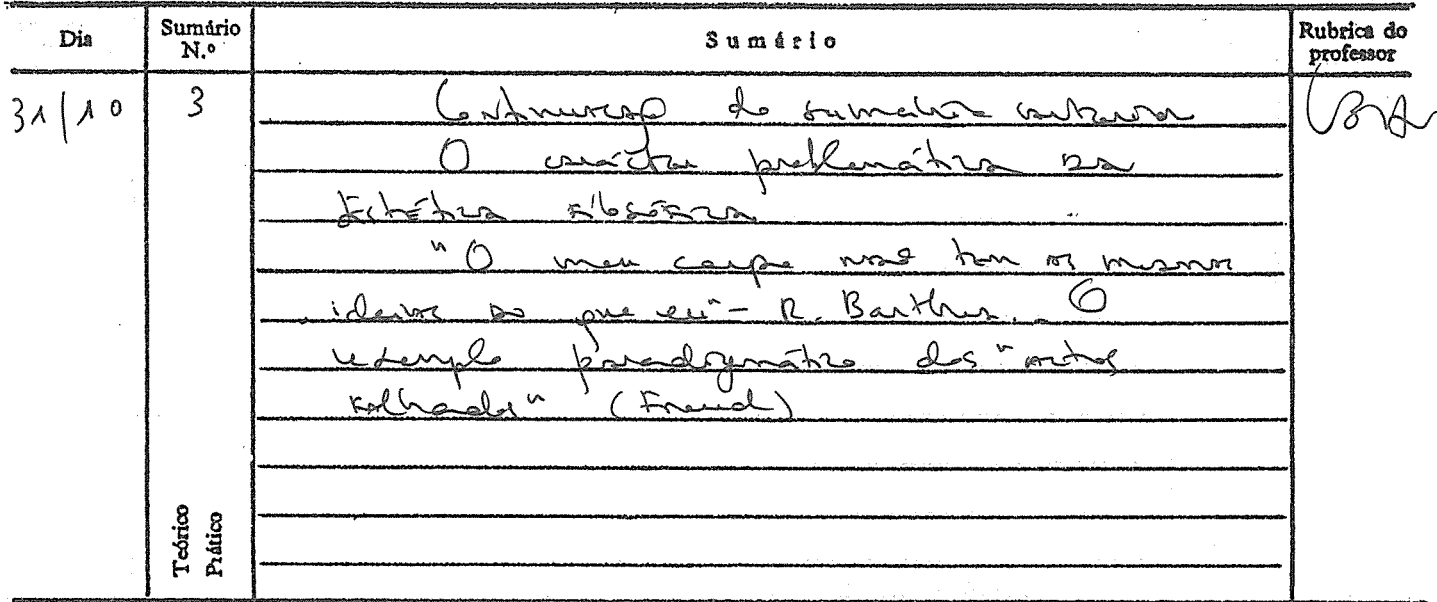 Dia
Sumário N.º
Sumário
Rubrica do professor
31/10
3
Continuação do sumário anterior
O carácter problemático da
Estética Filosófica
"O meu corpo não tem as mesmas
ideias do que eu" - R. Barthes. O
exemplo paradigmático dos "actos
falhados" (Freud)
Teórico
Prático